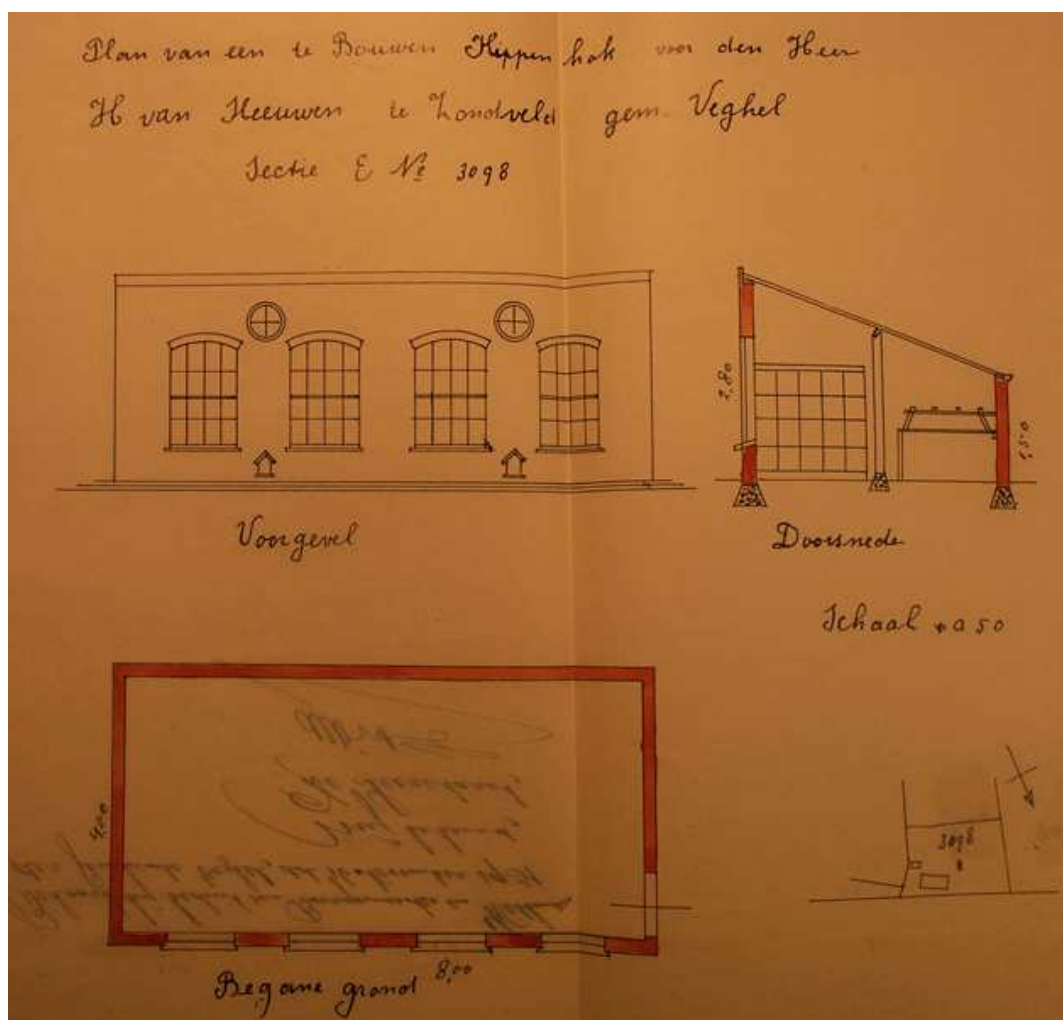 Plan van een te Bouwen Kippen hok voor den Heer
H van Heeuwen te Zondveld gem. Veghel
Sectie E No 3098
2,80
1,50
Voorgevel
Doorsnede
Schaal à 50
4,00
3098
8,00
Begane grond